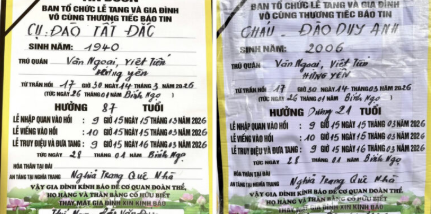 BAN TỔ CHỨC LỄ TANG VÀ GIA ĐÌNH
VÔ CÙNG THƯƠNG TIẾC BÁO TIN
CỤ: ĐÀO TẤT ĐẮC
SINH NĂM: 1940
TRÚ QUÁN Văn Ngoại, Việt Tiến
Hưng yên
TỪ TRẦN HỒI 17 GIỜ 30 NGÀY 14 THÁNG 3 NĂM 2026
(TỨC NGÀY 26 THÁNG 01 NĂM Bính Ngọ)
HƯỞNG 87 TUỔI
LỄ NHẬP QUAN VÀO HỒI : 9 GIỜ 15 NGÀY 15 THÁNG 03 NĂM 2026
LỄ VIẾNG VÀO HỒI : 10 GIỜ 15 NGÀY 15 THÁNG 03 NĂM 2026
LỄ TRUY ĐIỆU VÀ ĐƯA TANG : 9 GIỜ 15 NGÀY 16 THÁNG 03 NĂM 2026
TỨC NGÀY 28 THÁNG 01 NĂM Bính Ngọ
HỎA THIÊU TẠI ĐÀI
AN TÁNG TẠI NGHĨA TRANG Nghĩa Trang Quê Nhà
VẬY GIA ĐÌNH KÍNH BÁO ĐỂ CƠ QUAN ĐOÀN THỂ,
HỌ HÀNG VÀ THÂN BẰNG CỐ HỮU BIẾT
THAY MẶT GIA ĐÌNH XIN KÍNH BÁO
BAN TỔ CHỨC LỄ TANG VÀ GIA ĐÌNH
VÔ CÙNG THƯƠNG TIẾC BÁO TIN
CHÁU ĐÀO DUY ANH
SINH NĂM: 2006
TRÚ QUÁN Văn Ngoại, Việt Tiến
HƯNG YÊN
TỪ TRẦN HỒI 17 GIỜ 30 NGÀY 14 THÁNG 3 NĂM 2026
(TỨC NGÀY 26 THÁNG 01 NĂM Bính Ngọ)
HƯỞNG Dương 21 TUỔI
LỄ NHẬP QUAN VÀO HỒI : 9 GIỜ 15 NGÀY 15 THÁNG 03 NĂM 2026
LỄ VIẾNG VÀO HỒI : 10 GIỜ 15 NGÀY 15 THÁNG 03 NĂM 2026
LỄ TRUY ĐIỆU VÀ ĐƯA TANG : 9 GIỜ 15 NGÀY 16 THÁNG 03 NĂM 2026
TỨC NGÀY 28 THÁNG 01 NĂM Bính Ngọ
HỎA THIÊU TẠI ĐÀI
AN TÁNG TẠI NGHĨA TRANG Nghĩa Trang Quê Nhà
VẬY GIA ĐÌNH KÍNH BÁO ĐỂ CƠ QUAN ĐOÀN THỂ,
HỌ HÀNG VÀ THÂN BẰNG CỐ HỮU BIẾT
THAY MẶT GIA ĐÌNH XIN KÍNH BÁO